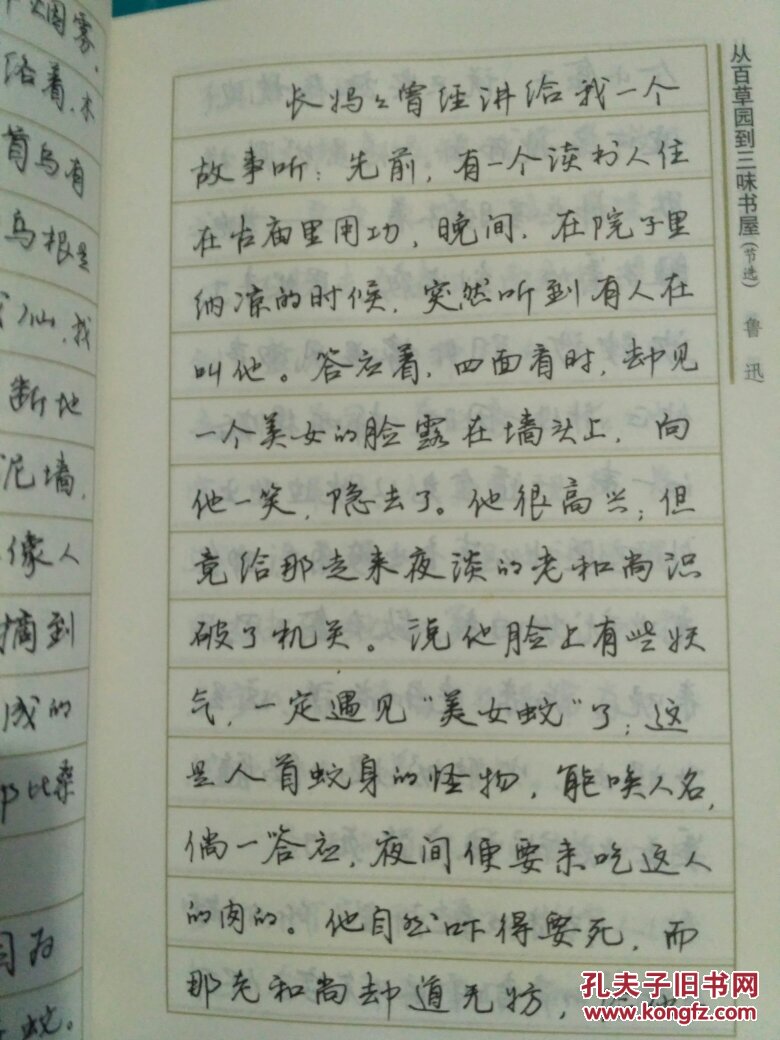 络着，木
首乌有
乌根是
仙，我
断地
泥墙，
像人
摘到
成的
比桑
蛇。
长妈々曾经讲给我一个
故事听：先前，有一个读书人住
在古庙里用功，晚间，在院子里
纳凉的时候，突然听到有人在
叫他。答应着，四面看时，却见
一个美女的脸露在墙头上，向
他一笑，隐去了。他很高兴；但
竟给那走来夜谈的老和尚识
破了机关。说他脸上有些妖
气，一定遇见“美女蛇”了；这
是人首蛇身的怪物，能唤人名，
倘一答应，夜间便要来吃这人
的肉的。他自然吓得要死，而
那老和尚却道无妨，
从百草园到三味书屋(节选) 鲁迅
孔夫子旧书网
www.kongfz.com